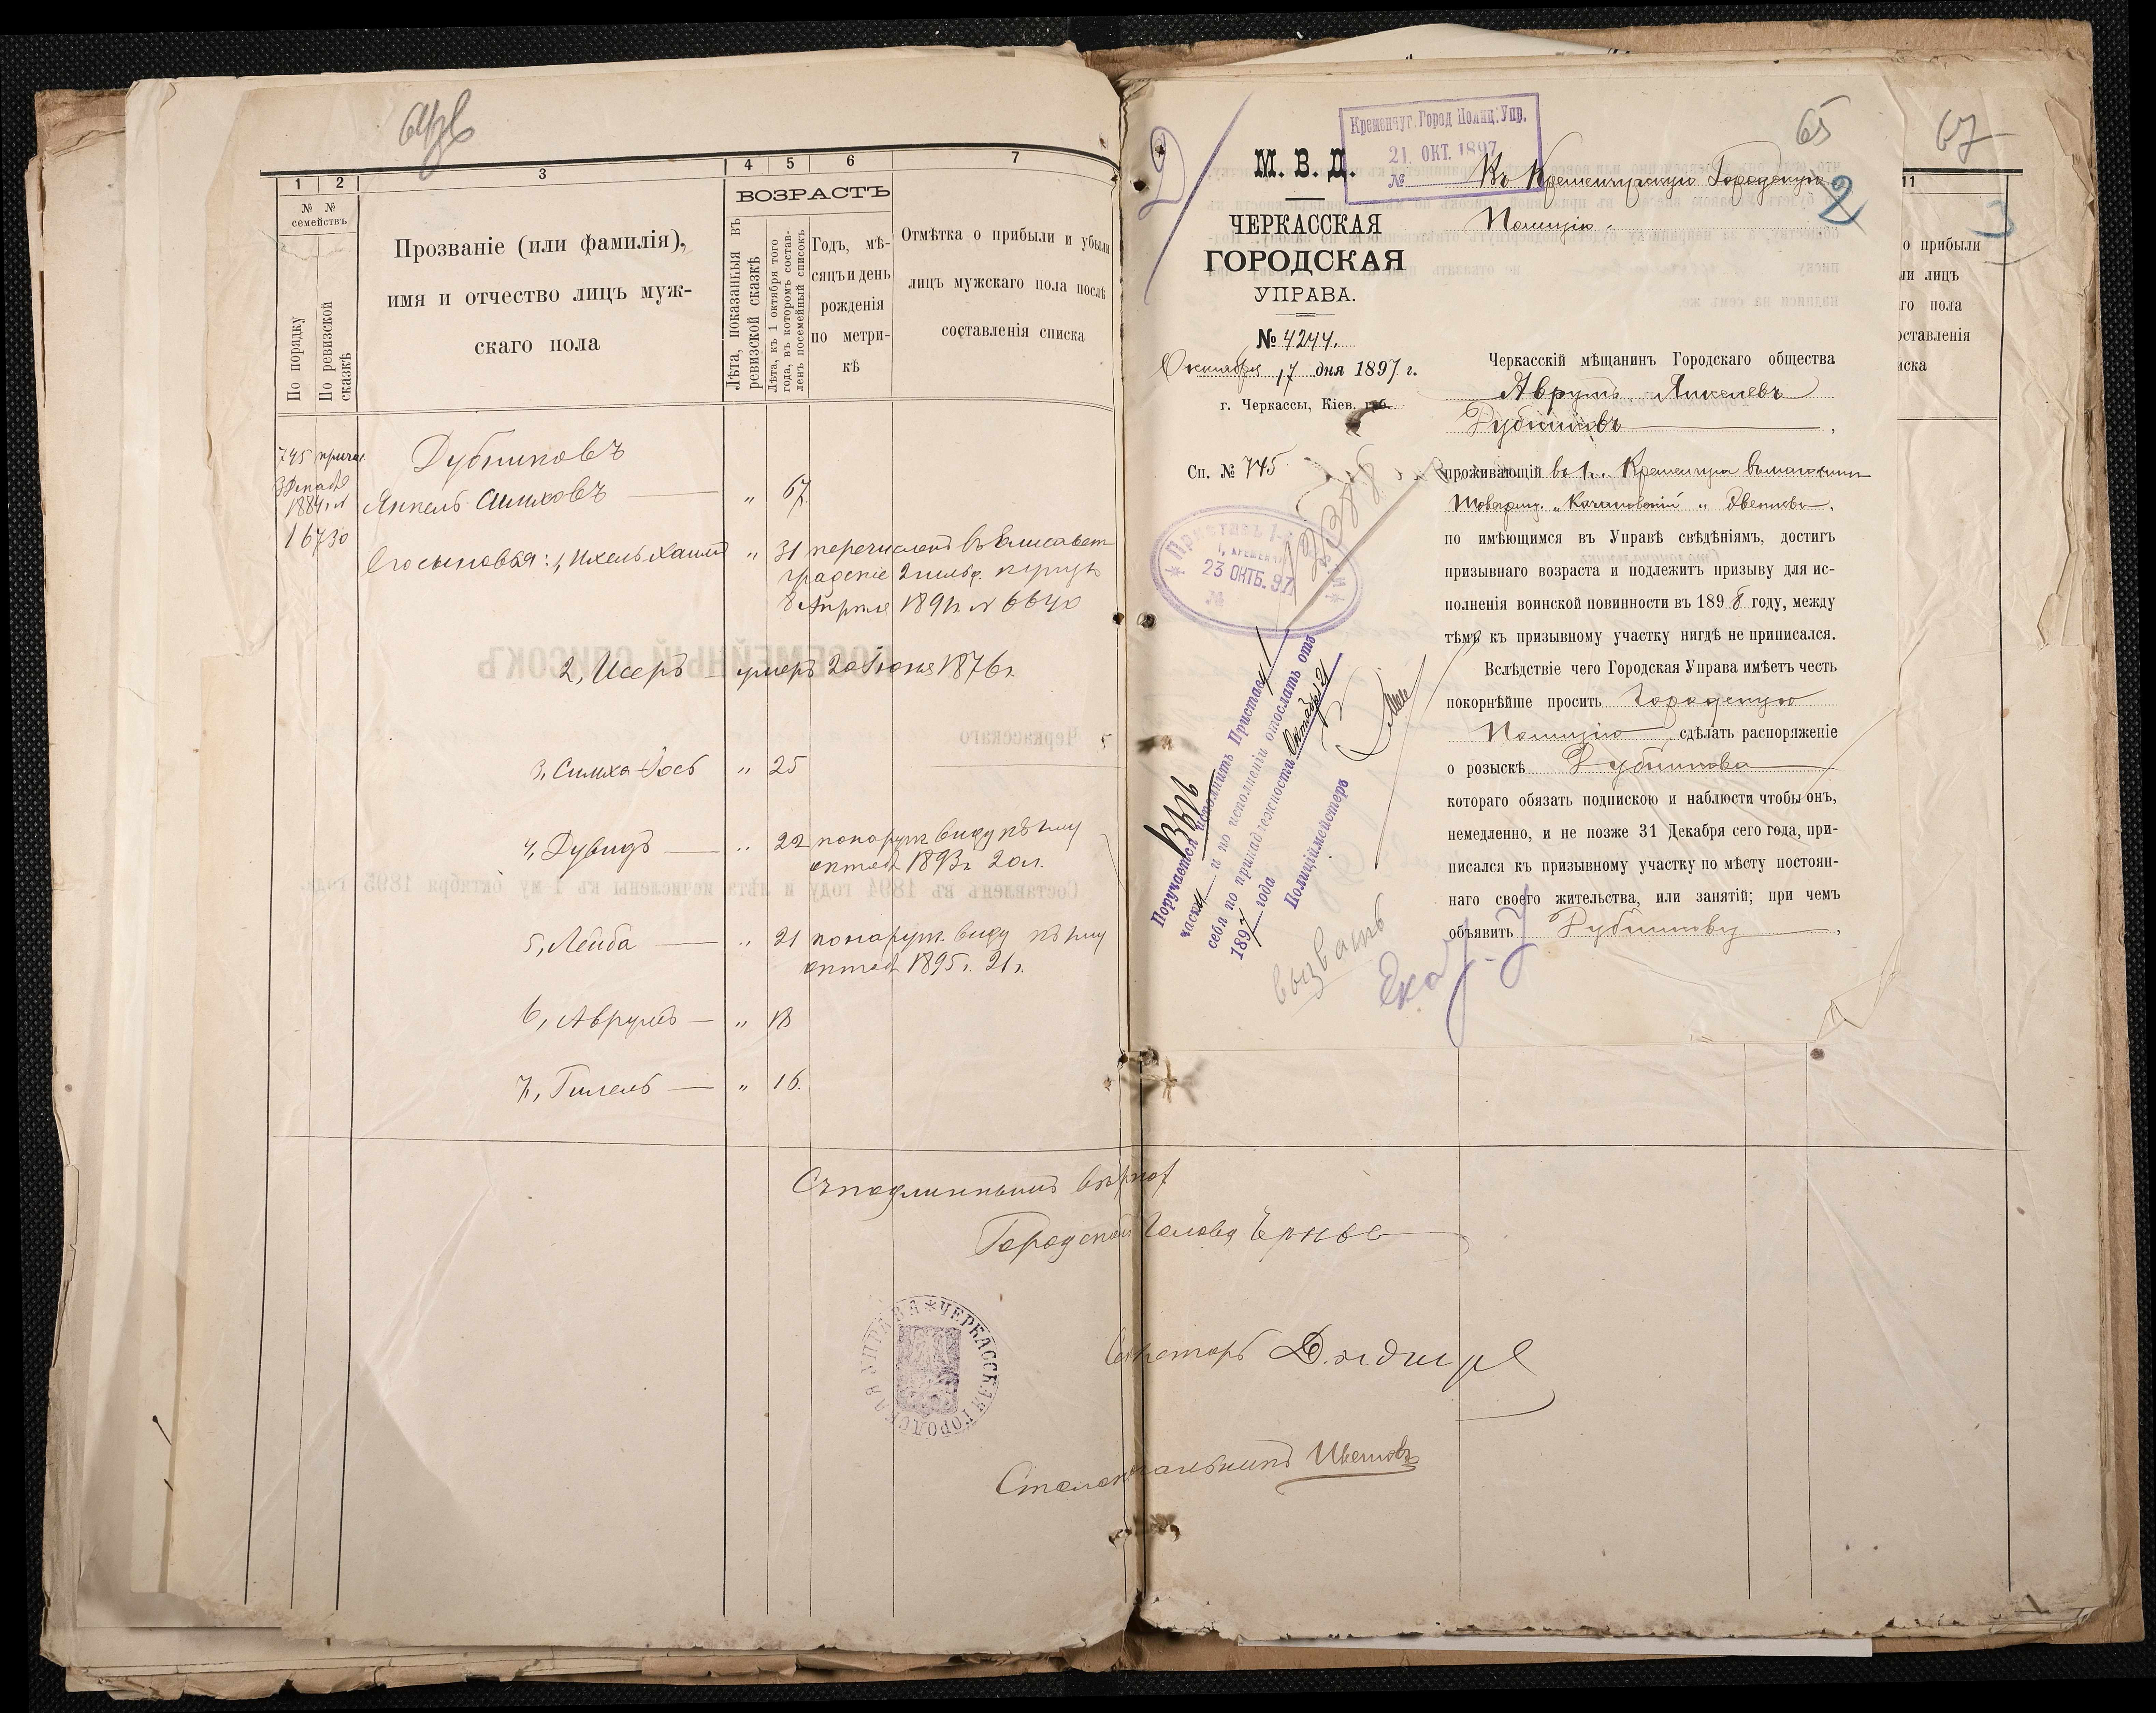 1
2
3
4
5
6
7
№ №
семействъ
По порядку
По ревизской сказкѣ
Прозваніе (или фамилія),
имя и отчество лицъ муж-
скаго пола
ВОЗРАСТЪ
Лѣта, показанныя въ
ревизской сказкѣ
Лѣта, къ 1 октября того
года, въ которомъ состав-
ленъ посемейный списокъ
Годъ, мѣ-
сяцъ и день
рожденія
по метри-
кѣ
Отмѣтка о прибыли и убыли
лицъ мужскаго пола послѣ
составленія списка
745
1884 г. №
16730
Дубниковъ
Янкель Симховъ — „ 67
Его сыновья: 1, Ихель Хаимъ „ 31 перечисленъ въ Елисавет-
градскіе 2 гильд. купцы
8 Апрѣля 1891 г. № 6640
2, Исеръ умеръ 20 Іюня 1876 г.
3, Симха Іось „ 25
4, Дувидъ — „ 22 по наружн. виду къ 1му
октяб. 1893 г. 20 л.
5, Лейба — „ 21 по наруж. виду къ 1му
октяб. 1895 г. 21 г.
6, Аврумъ — „ 18
7, Гилель — „ 16.
Съ подлиннымъ вѣрно
Городской Голова
Секретарь
Столоначальникъ
ЧЕРКАССКАЯ ГОРОДСКАЯ УПРАВА
2
Кременчуг. Город Полиц. Упр.
21. ОКТ. 1897
№
65
67
2
3
М. В. Д.
ЧЕРКАССКАЯ
ГОРОДСКАЯ
УПРАВА.
№ 4244.
Октября 17 дня 1897 г.
г. Черкассы, Кіев. губ.
Сп. № 745
Въ Кременчугскую Городскую
Полицію.
Черкасскій мѣщанинъ Городскаго общества
Аврумъ Янкелевъ
Дубниковъ
проживающій въ г. Кременчугѣ
по имѣющимся въ Управѣ свѣдѣніямъ, достигъ
призывнаго возраста и подлежитъ призыву для ис-
полненія воинской повинности въ 1898 году, между
тѣмъ къ призывному участку нигдѣ не приписался.
Вслѣдствіе чего Городская Управа имѣетъ честь
покорнѣйше просить Городскую
Полицію сдѣлать распоряженіе
о розыскѣ Дубникова
котораго обязать подпискою и наблюсти чтобы онъ,
немедленно, и не позже 31 Декабря сего года, при-
писался къ призывному участку по мѣсту постоян-
наго своего жительства, или занятій; при чемъ
объявить Дубникову
Приставъ 1-й
г. Кременчуг
23 ОКТБ. 97
№
Поручается исполнить Приставу 1
части и по исполненіи отослать отъ
себя по принадлежности Октября 21
1897 года
Полиціймейстеръ
вызвать
11
о прибыли
ли лицъ
го пола
оставленія
иска